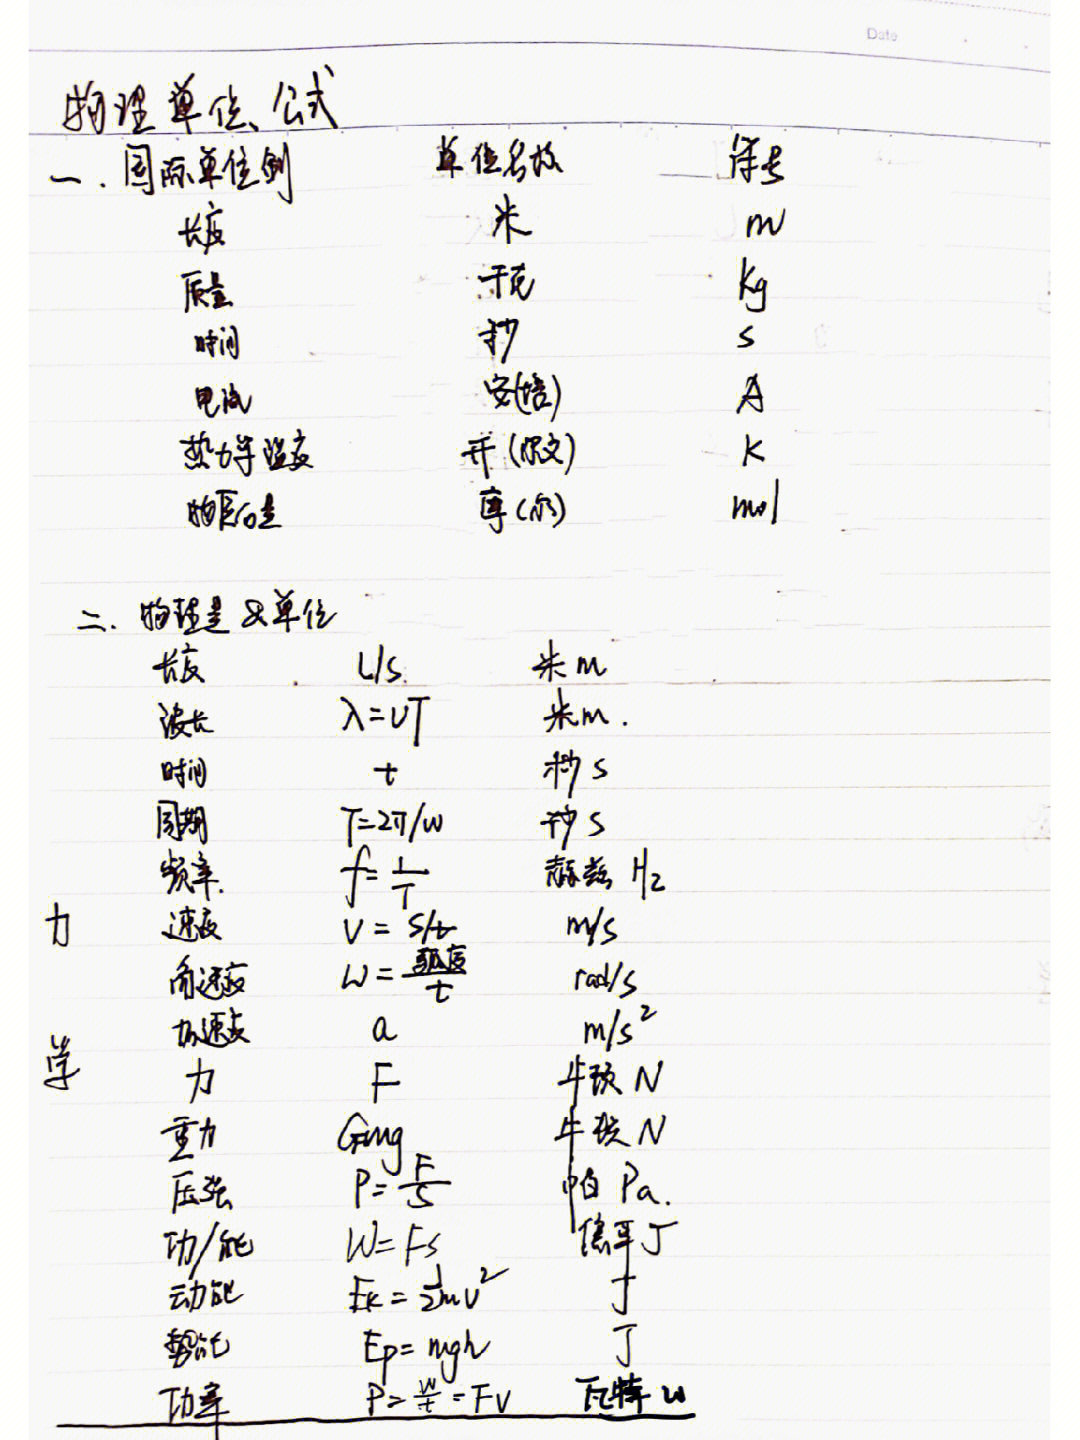 Date
物理单位、公式
一. 国际单位制 单位名称 符号
长度 米 m
质量 千克 Kg
时间 秒 s
电流 安(培) A
热力学温度 开(尔文) K
物质的量 摩(尔) mol
二. 物理量&单位
长度 L/s. 米 m
波长 λ=υT 米m.
时间 t 秒 s
周期 T=2π/w 秒 s
频率. f=1/T 赫兹 Hz
力 速度 V = s/t m/s
角速度 W = 弧度/t rad/s
学 加速度 a m/s²
力 F 牛顿 N
重力 G=mg 牛顿 N
压强 P=F/S 帕 Pa.
功/能 W=Fs 焦耳 J
动能 Ek=1/2mv² J
势能 Ep=mgh J
功率 P=W/t=Fv 瓦特 w